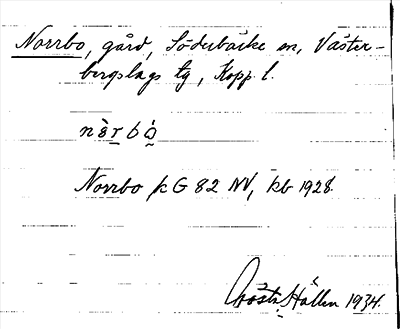 Norrbo, gård, Söderbärke sn, Väster-
bergslags tg, Kopp l.
Norrbo k G 82 NV, kb 1928.
Gösta Hallen 1934.